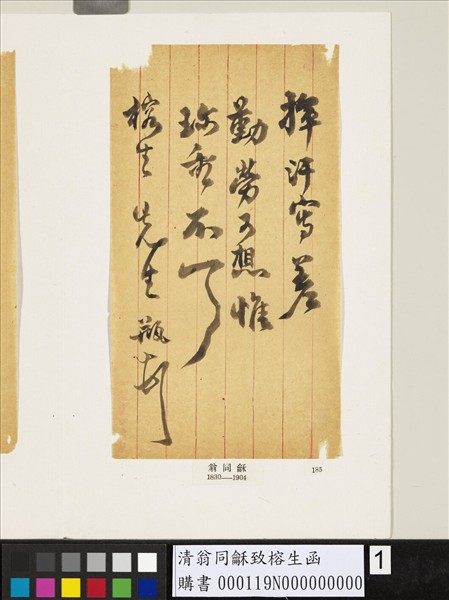 揮汗寫差
勤勞可想惟
珍重不
榕生先生 瓶
翁同龢
1830——1904
185
清翁同龢致榕生函
購書 000119N000000000
1